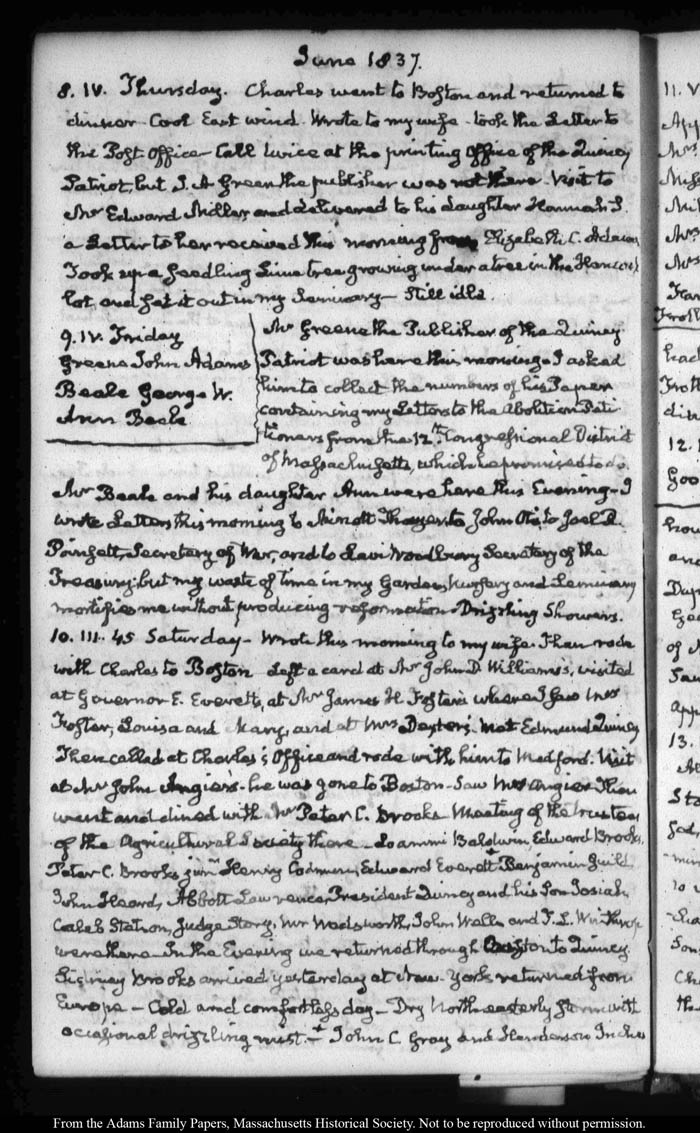 June 1837.
8. IV. Thursday. Charles went to Boston and returned to
dinner. Cool East wind. Wrote to my wife - took the Letter to
the Post Office - Call twice at the printing Office of the Quincy
Patriot, but J. A Green the publisher was not there. Visit to
Mr Edward Miller and delivered to his daughter Hannah S.
a Letter to her received this morning from Elizabeth C. Adams
Took up a seedling Lime tree growing under a tree in the Hancock
lot and set it out in my Seminary - Still idle.
9. IV. Friday
Greene John Adams
Beale George W.
Ann Beale
Mr Greene the Publisher of the Quincy
Patriot was here this morning - I asked
him to collect the numbers of his Paper
containing my Letters to the Abolition Peti
tioners from the 12th Congressional District
of Massachusetts, which he promised to do.
Mr Beale and his daughter Ann were here this Evening - I
wrote Letters this morning to Minott Thayer, to John Otis, to Joel R.
Poinsett, Secretary of War, and to Levi Woodbury Secretary of the
Treasury; but my waste of time in my Garden, Nursery and Seminary
mortifies me without producing reformation. Drizzling Showers.
10. III. 45 Saturday - Wrote this morning to my wife. Then rode
with Charles to Boston Left a card at Mr John D. Williams's, visited
at Governor E. Everett's, at Mr James H. Foster's where I saw Mrs
Foster, Louisa and Mary, and at Mrs Dexter's. Met Edmund Quincy
Then called at Charles's Office and rode with him to Medford. Visit
at Mr John Angier's - he was gone to Boston - Saw Mrs Angier Then
went and dined with Mr Peter C. Brooks Meeting of the trustees
of the Agricultural Society there - Loammi Baldwin, Edward Brooks,
Peter C. Brooks junr Henry Codman, Edward Everett Benjamin Guild
John Heard, Abbott Lawrence, President Quincy and his Son Josiah,
Caleb Stetson, Judge Story, Mr Wadsworth, John Wells and T. L. Winthrop
were there. In the Evening we returned through to Quincy
Sidney Brooks arrived yesterday at New-York returned from
Europe - Cold and comfortless day - Dry North-easterly storm with
occasional drizzling mist. + John C. Gray and Henderson Inches
11. V
12.
13.
From the Adams Family Papers, Massachusetts Historical Society. Not to be reproduced without permission.